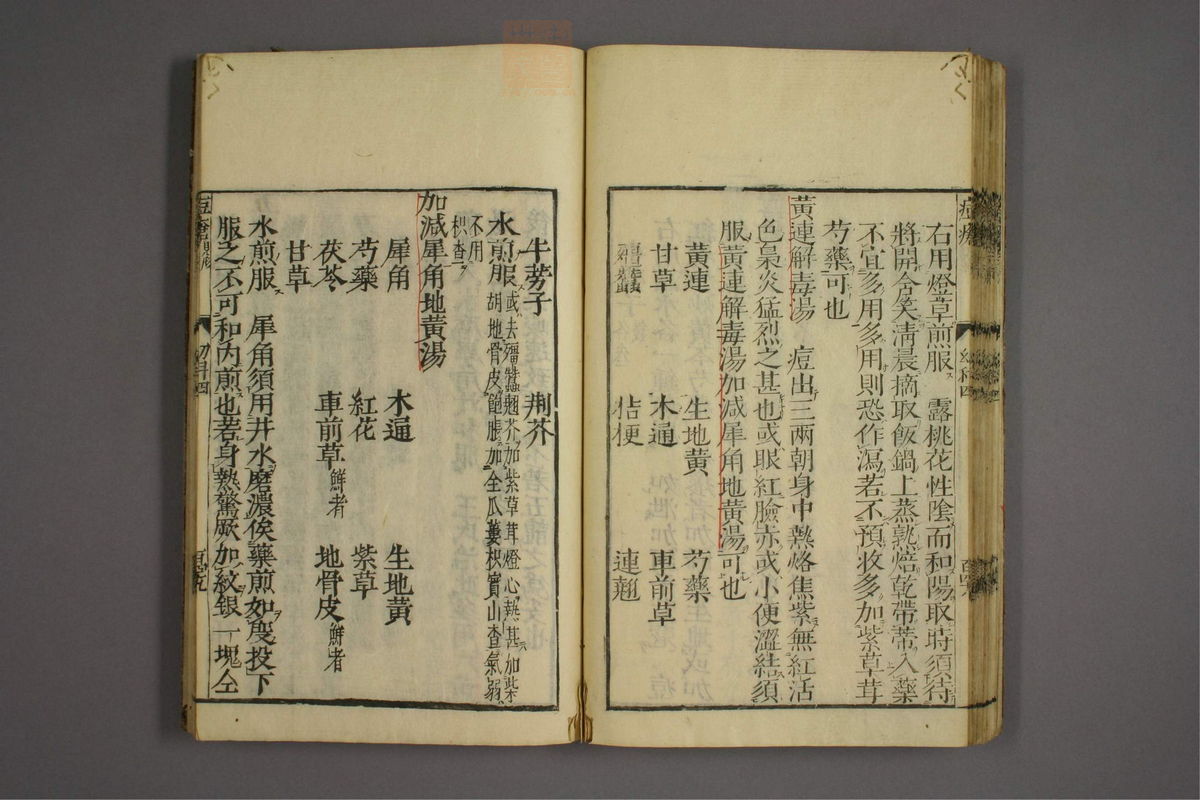 右用燈草煎服 露桃花性陰而和陽取時須待
將開含笑淸晨摘取飯鍋上蒸熟焙乾帶蒂入藥
不宜多用多用則恐作瀉若不預收多加紫草茸
芍藥可也
黃連解毒湯 痘出三兩朝身中熱烙焦紫無紅活
色梟炎猛烈之甚也或眼紅臉赤或小便澀結須
服黃連解毒湯加減犀角地黃湯可也
黃連 生地黃 芍藥
甘草 木通 車前草
桔梗 連翹
牛蒡子 荆芥
水煎服或去殭蠶翹芥加紫草茸燈心熱甚加柴
胡地骨皮飽脹加全瓜蔞枳實山查氣弱
不用
枳查
加減犀角地黃湯
犀角 木通 生地黃
芍藥 紅花 紫草
茯苓 車前草鮮者 地骨皮鮮者
甘草
水煎服 犀角須用井水磨濃俟藥煎如度投下
服之不可和內煎也若身熱驚厥加紋銀一塊仝